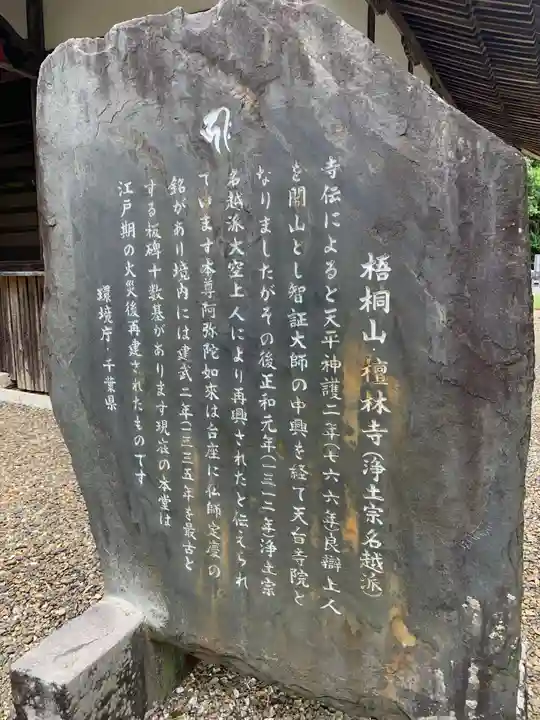 梧桐山・檀林寺(浄土宗名越派)
寺伝によると天平神護二年(七六六年)良辯上人
を開山とし智証大師の中興を経て天台寺院と
なりましたがその後正和元年(一三一二年)浄土宗
名越派大空上人により再興されたと伝えられ
ています本尊阿弥陀如来は台座に仏師定慶の
銘があり境内には建武二年(一三三五年を最古と
する板碑十数基があります現在の本堂は
江戸期の火災後再建されたものです
環境庁・千葉県